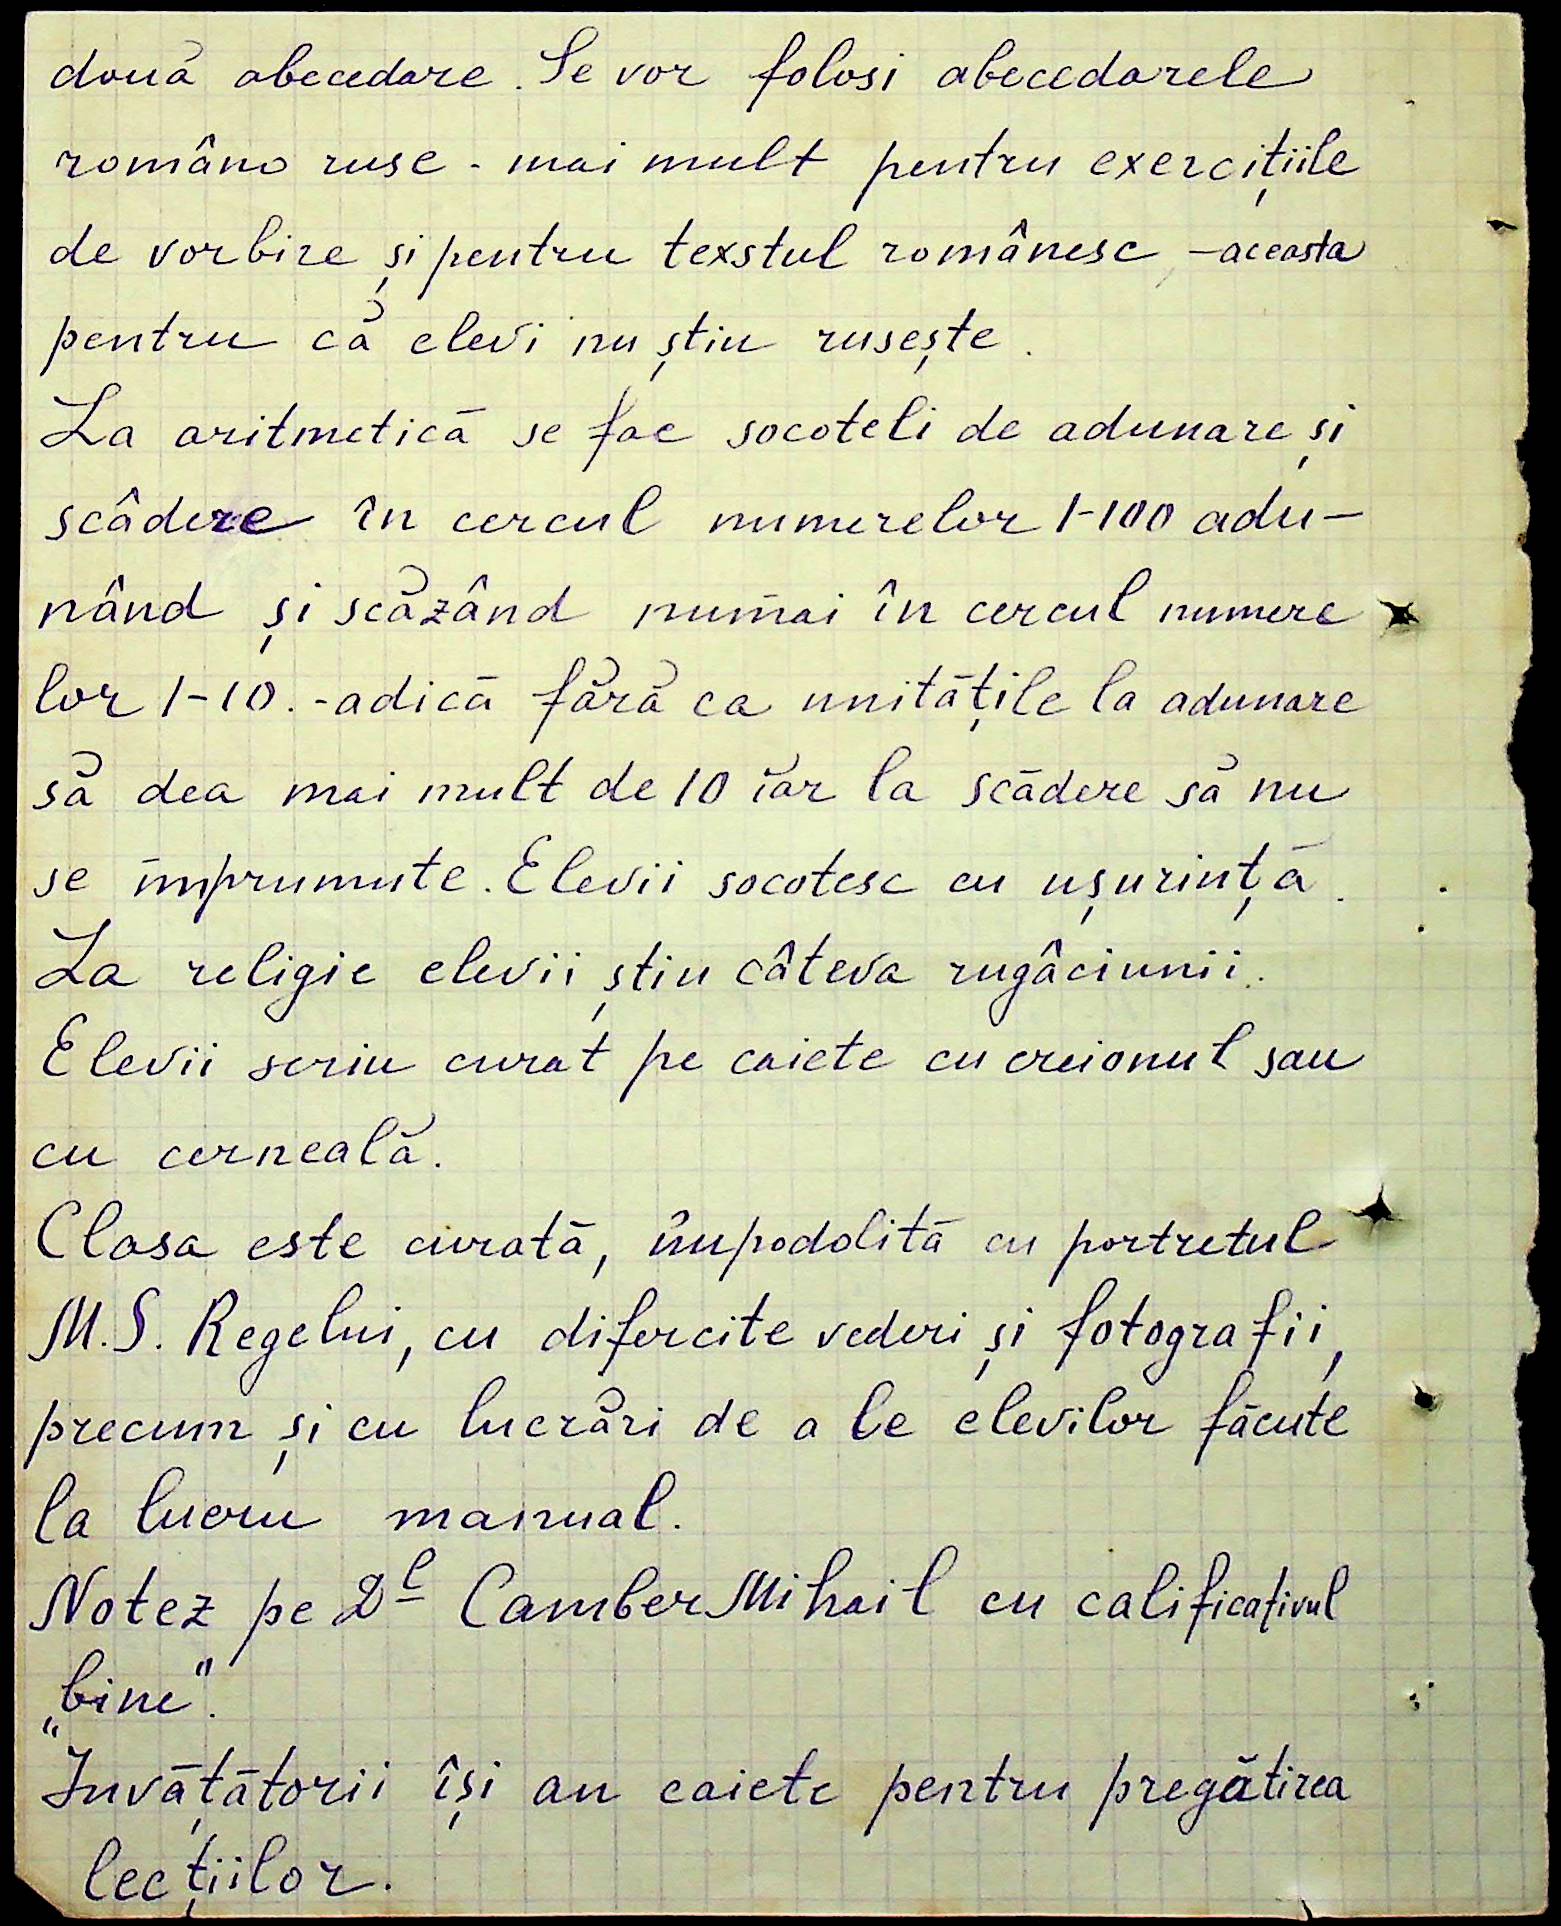 două abecedare. Se vor folosi abecedarele
româno ruse - mai mult pentru exercițiile
de vorbire și pentru texstul românesc, -aceasta
pentru că elevi nu știu rusește.
La aritmetică se fac socoteli de adunare și
scâdere în cercul numerelor 1-100 adu-
nând și scăzând numai în cercul numere
lor 1-10. -adică fără ca unitățile la adunare
să dea mai mult de 10 iar la scădere să nu
se imprumute. Elevii socotesc cu ușurință.
La religie elevii știu câteva rugâciunii.
Elevii scriu curat pe caiete cu creionul sau
cu cerneală.
Clasa este curată, împodolită cu portretul
M.S. Regelui, cu difercite vederi și fotografii,
precum și cu lucrări de a le elevilor făcute
la lucru manual.
Notez pe Dl Camber Mihail cu calificațivul
„bine".
Invățătorii își au caiete pentru pregătirea
lecțiilor.